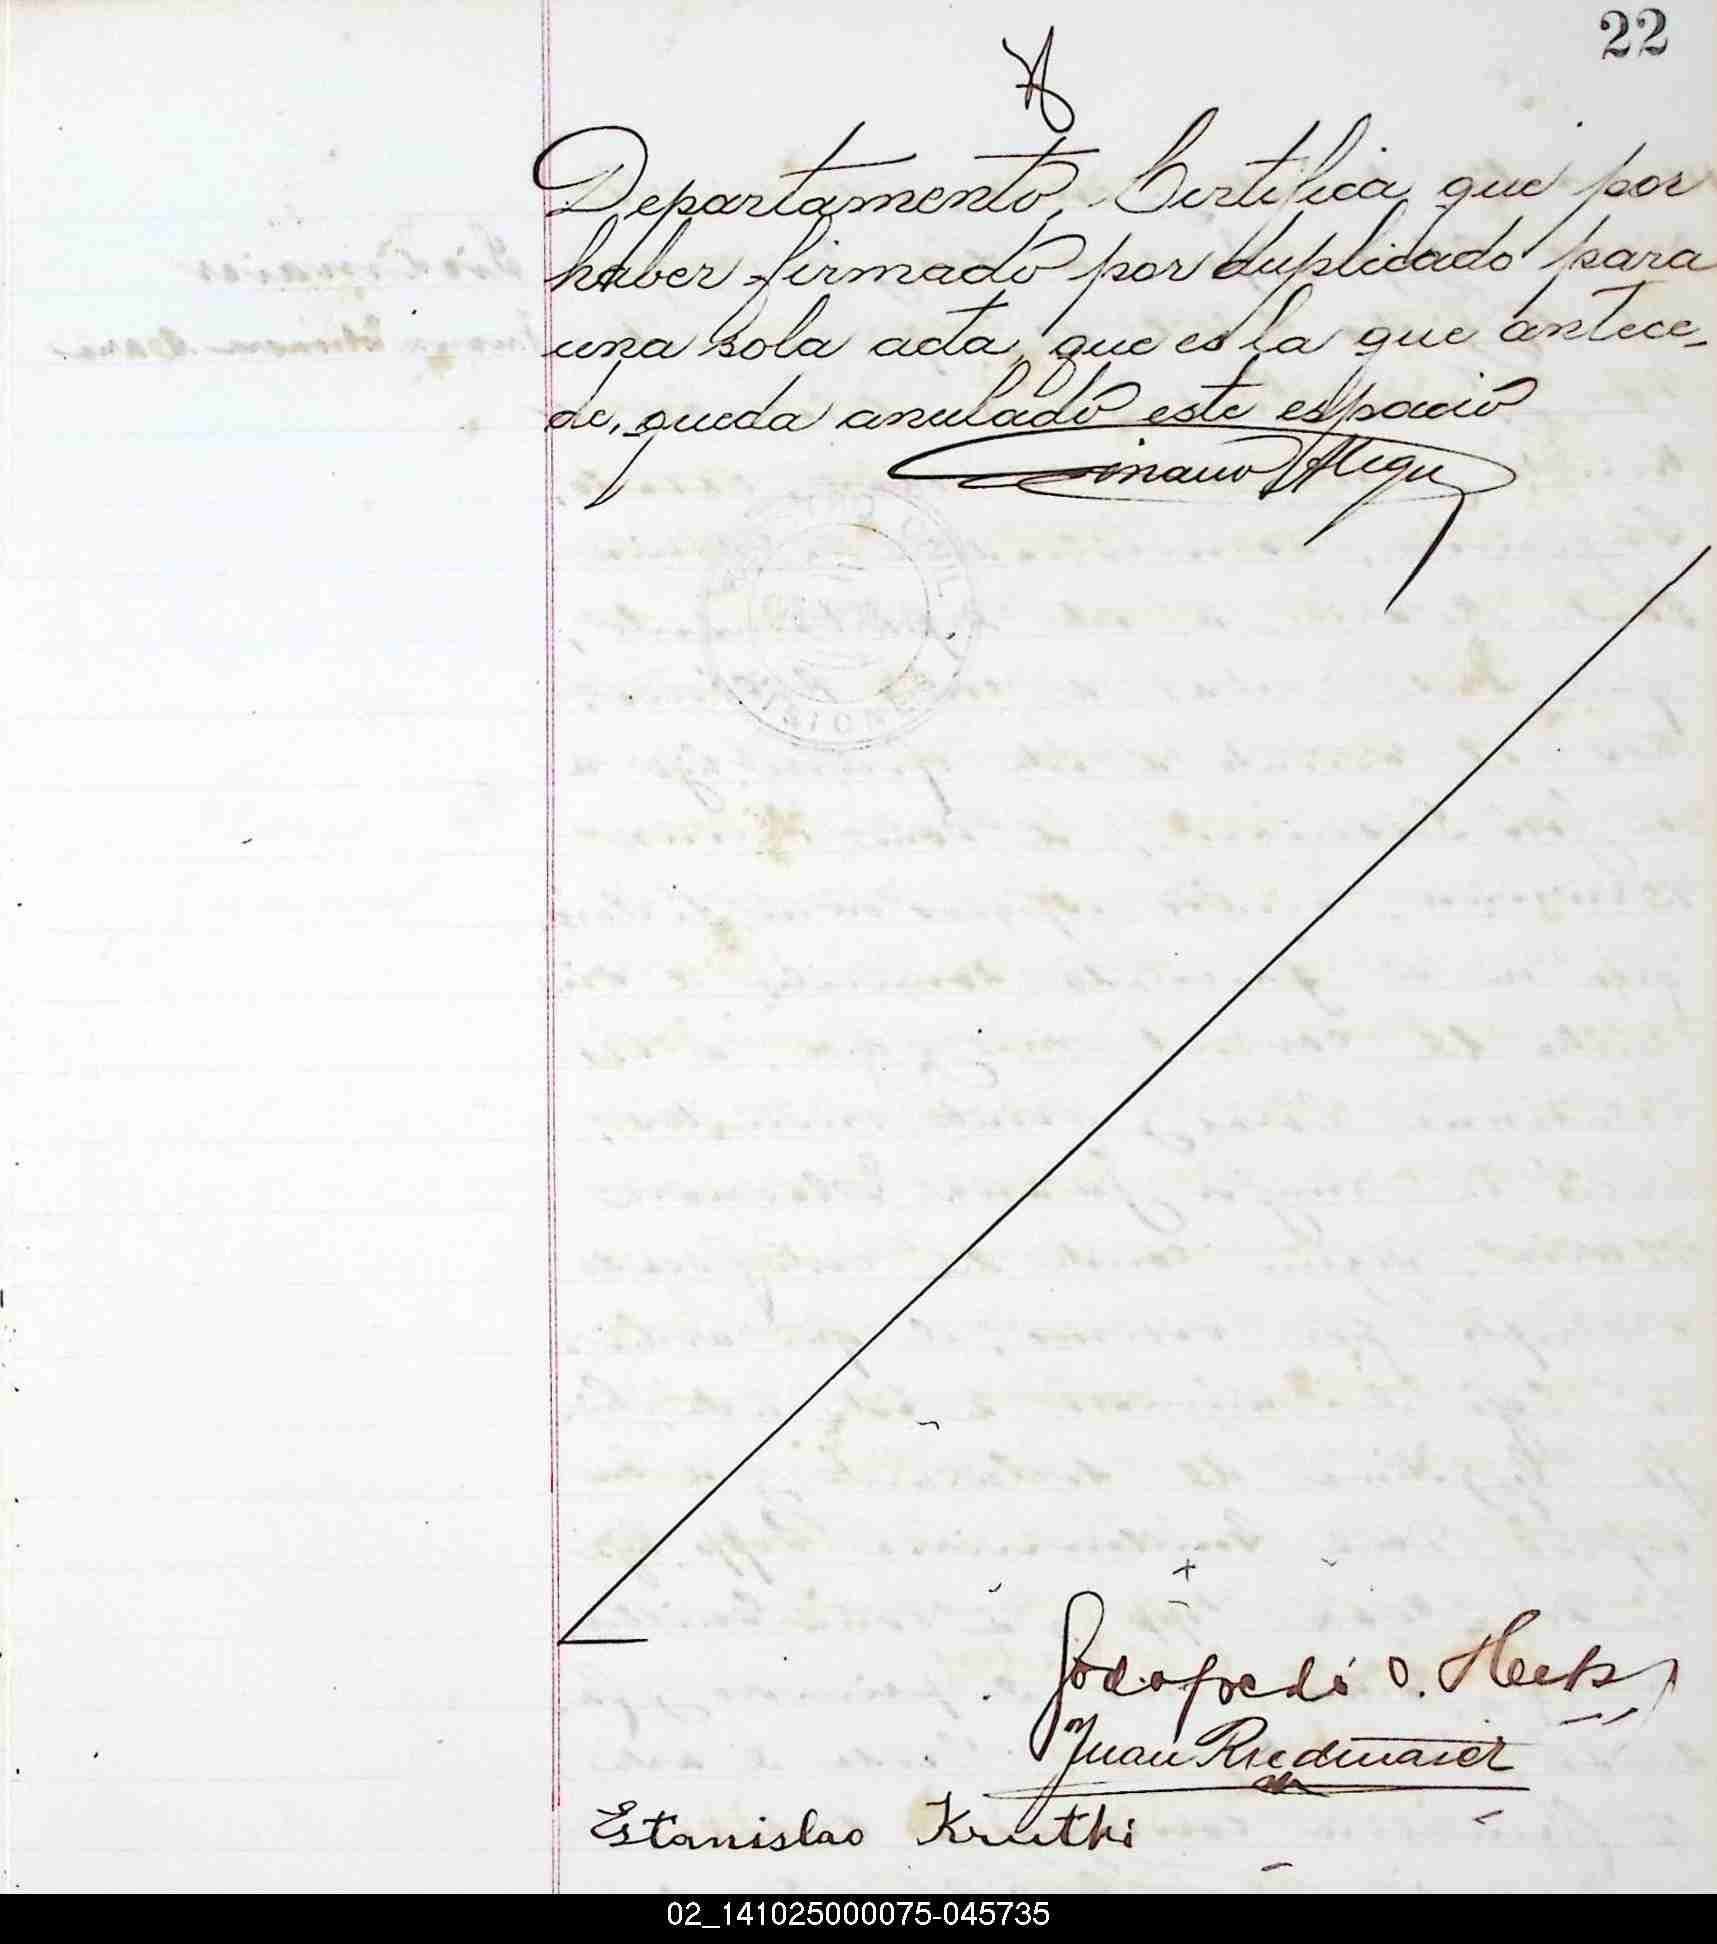 22
Departamento, Certifica que por
haber firmado por duplicado para
una sola acta, que es la que antece-
de, queda anulado este espacio
Godofredo O.
Juan Riedmaier
Estanislao Kruthi
02_141025000075-045735